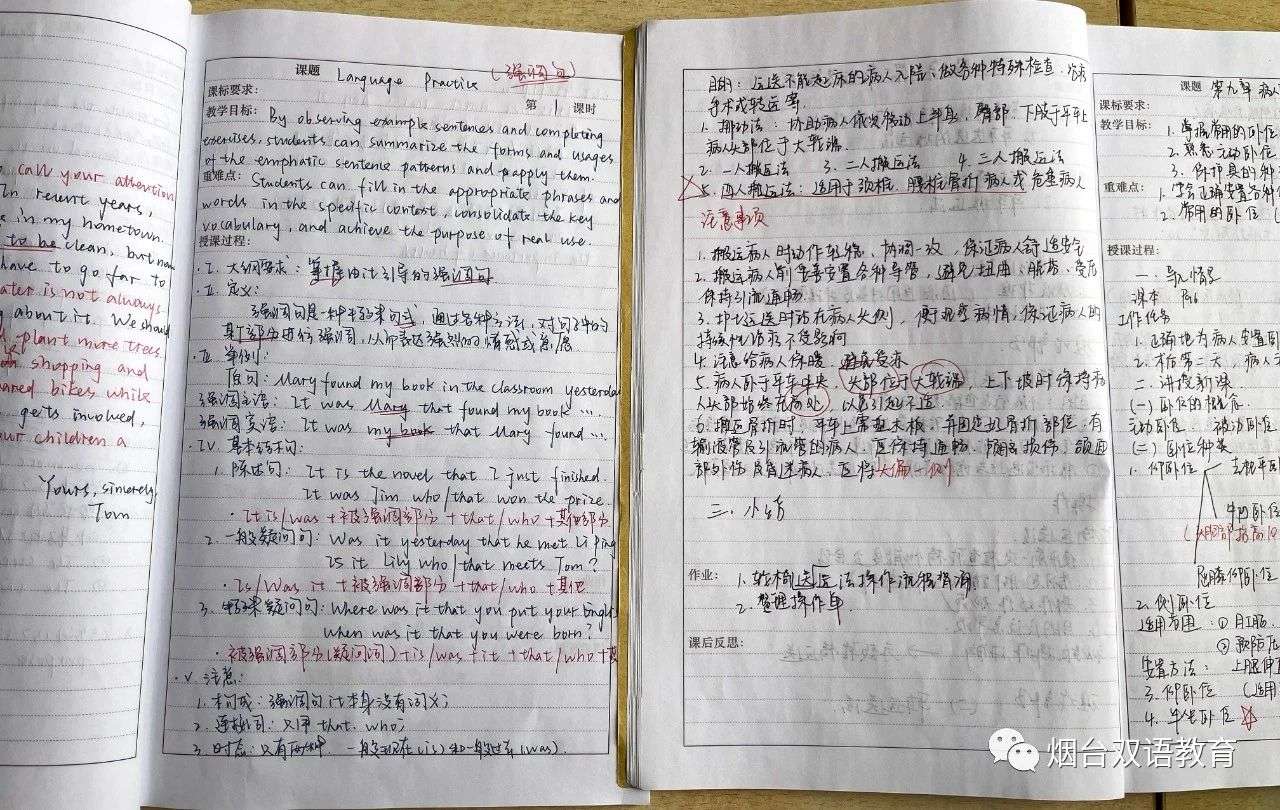 call your attention
In recent years,
in my hometown.
to be clean, but now
have to go far to
water is not always
about it. We should
plant more trees
shopping and
shared bikes while
gets involved,
our children a
Yours, sincerely
Tom
课题 Language Practice (强调句)
课标要求:
第 1 课时
教学目标: By observing example sentences and completing
exercises, students can summarize the forms and usages
of the emphatic sentence patterns and papply them.
重难点: Students can fill in the appropriate phrases and
words in the specific context, consolidate the key
vocabulary, and achieve the purpose of real use.
授课过程:
I. 大纲要求: 掌握由it引导的强调句
II. 定义:
强调句是一种特殊句式, 通过各种方法, 对句子中的
某个部分进行强调, 从而表达强烈的情感或意愿
III. 举例:
原句: Mary found my book in the classroom yesterday
强调主语: It was Mary that found my book ...
强调宾语: It was my book that Mary found ...
IV. 基本结构:
1. 陈述句: It is the novel that I just finished.
It was Jim who/that won the prize
It is/was + 被强调部分 + that/who + 其他部分
2. 一般疑问句: Was it yesterday that he met Li Ping
Is it Lily who/that meets Tom?
Is/Was it + 被强调部分 + that/who + 其他
3. 特殊疑问句: Where was it that you put your
when was it that you were born?
被强调部分(疑问词) + is/was + it + that/who + 其
V. 注意:
1. 构成: 强调句it本身没有词义;
2. 连接词: 只用that, who;
3. 时态: 只有两种, 一般现在(is)和一般过去(was).
目的: 运送不能起床的病人入院、做各种特殊检查、治疗
手术或转运等.
1. 挪动法: 协助病人依次移动上半身、臀部、下肢于平车上
病人头部位于大轮端.
2. 一人搬运法 3. 二人搬运法 4. 三人搬运法
5. 四人搬运法: 适用于颈椎、腰椎骨折病人或危重病人
注意事项
1. 搬运病人时动作轻稳、协调一致, 保证病人舒适安全
2. 搬运病人前妥善安置各种导管, 避免扭曲、脱落、受压
保持引流通畅
3. 护士运送时站在病人头侧, 便观察病情, 保证病人的
持续性治疗不受影响
4. 注意给病人保暖 避免受凉
5. 病人卧于平车中央, 头部位于大轮端, 上下坡时保持病
人头部始终在高处, 以免引起不适
6. 搬运骨折时, 平车上需垫木板, 并固定好骨折部位, 有
输液管及引流管的病人, 应保持通畅,
应将头偏一侧
三、小结
作业: 1. 轮椅运送法操作流程背诵
2. 整理操作单
课后反思:
课题 第九章 病人
课标要求:
教学目标: 1. 掌握常用的卧位
2. 熟悉主动卧位
3.
重难点: 1. 学会正确安置各种
2. 常用的卧位
授课过程:
一、导入情景
课本 P86
工作任务
1. 正确地为病人安置卧
2. 术后第二天, 病人
二、讲授新课
(一) 卧位的概念.
主动卧位 被动卧位
(二) 卧位种类
1. 仰卧位 去枕平卧
中凹卧位
屈膝仰卧位
2. 侧卧位
适用范围: ①
② 预防压
安置方法:
3. 仰卧位 (适用
4. 半坐卧位
烟台双语教育